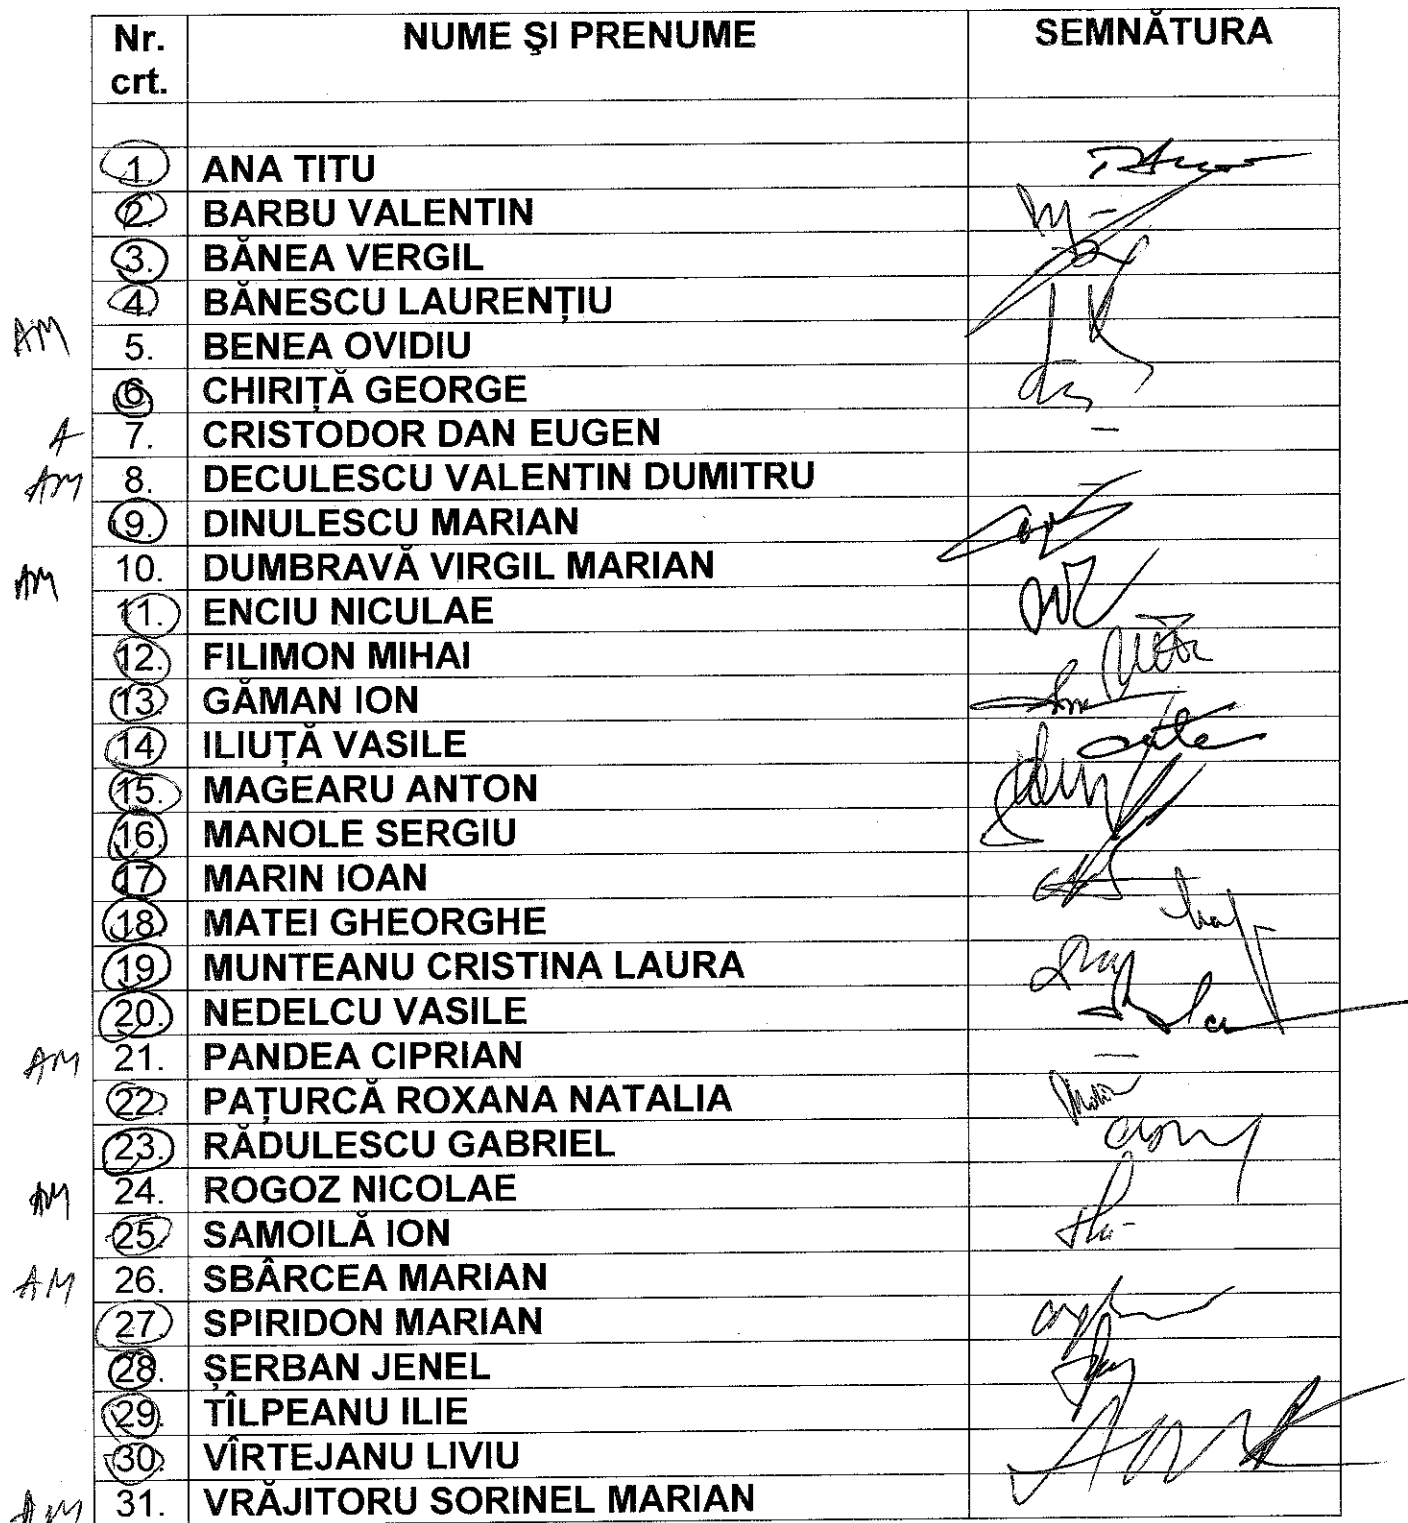 Nr. crt. NUME ŞI PRENUME SEMNĂTURA
1. ANA TITU
2. BARBU VALENTIN
3. BĂNEA VERGIL
4. BĂNESCU LAURENȚIU
AM 5. BENEA OVIDIU
6. CHIRIȚĂ GEORGE
A 7. CRISTODOR DAN EUGEN –
AM 8. DECULESCU VALENTIN DUMITRU –
9. DINULESCU MARIAN
AM 10. DUMBRAVĂ VIRGIL MARIAN
11. ENCIU NICULAE
12. FILIMON MIHAI
13. GĂMAN ION
14. ILIUȚĂ VASILE
15. MAGEARU ANTON
16. MANOLE SERGIU
17. MARIN IOAN
18. MATEI GHEORGHE
19. MUNTEANU CRISTINA LAURA
20. NEDELCU VASILE
AM 21. PANDEA CIPRIAN –
22. PAȚURCĂ ROXANA NATALIA
23. RĂDULESCU GABRIEL
AM 24. ROGOZ NICOLAE
25. SAMOILĂ ION
AM 26. SBÂRCEA MARIAN
27. SPIRIDON MARIAN
28. ȘERBAN JENEL
29. TÎLPEANU ILIE
30. VÎRTEJANU LIVIU
AM 31. VRĂJITORU SORINEL MARIAN